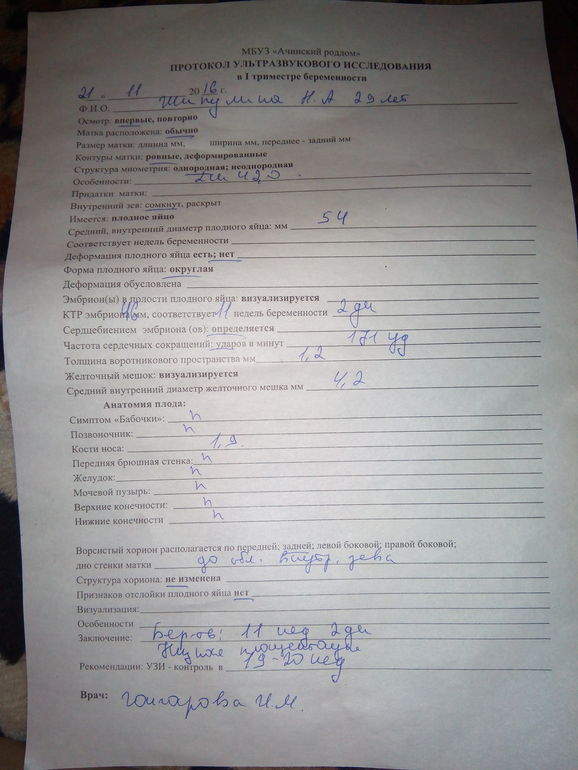 МБУЗ «Ачинский роддом»
ПРОТОКОЛ УЛЬТРАЗВУКОВОГО ИССЛЕДОВАНИЯ
в I триместре беременности
21 " 11 2016 г.
Ф.И.О. Шипулина Н.А 29 лет
Осмотр: впервые, повторно
Матка расположена: обычно
Размер матки: длинна мм, ширина мм, переднее - задний мм
Контуры матки: ровные, деформированные
Структура миометрия: однородная; неоднородная
Особенности: 420
Придатки матки:
Внутренний зев: сомкнут, раскрыт
Имеется: плодное яйцо
Средний, внутренний диаметр плодного яйца: мм 54
Соответствует недель беременности
Деформация плодного яйца есть; нет
Форма плодного яйца: округлая
Деформация обусловлена
Эмбрион(ы) в полости плодного яйца: визуализируется
КТР эмбриона 46 мм, соответствует 11 недель беременности 2 дн
Сердцебиением эмбриона (ов): определяется
Частота сердечных сокращений: ударов в минут 171 уд
Толщина воротникового пространства мм 1,2
Желточный мешок: визуализируется
Средний внутренний диаметр желточного мешка мм 4,2
Анатомия плода:
Симптом «Бабочки»: n
Позвоночник: n
Кости носа: 1,9
Передняя брюшная стенка: n
Желудок: n
Мочевой пузырь: n
Верхние конечности: n
Нижние конечности n
Ворсистый хорион располагается по передней; задней; левой боковой; правой боковой;
дно стенки матки до обл. внутр. зева
Структура хориона: не изменена
Признаков отслойки плодного яйца нет
Визуализация:
Особенности
Заключение: Бер-ть: 11 нед 2 дн
Низкое плацентация
Рекомендации: УЗИ - контроль в 19-20 нед
Врач: Гончарова И.М.